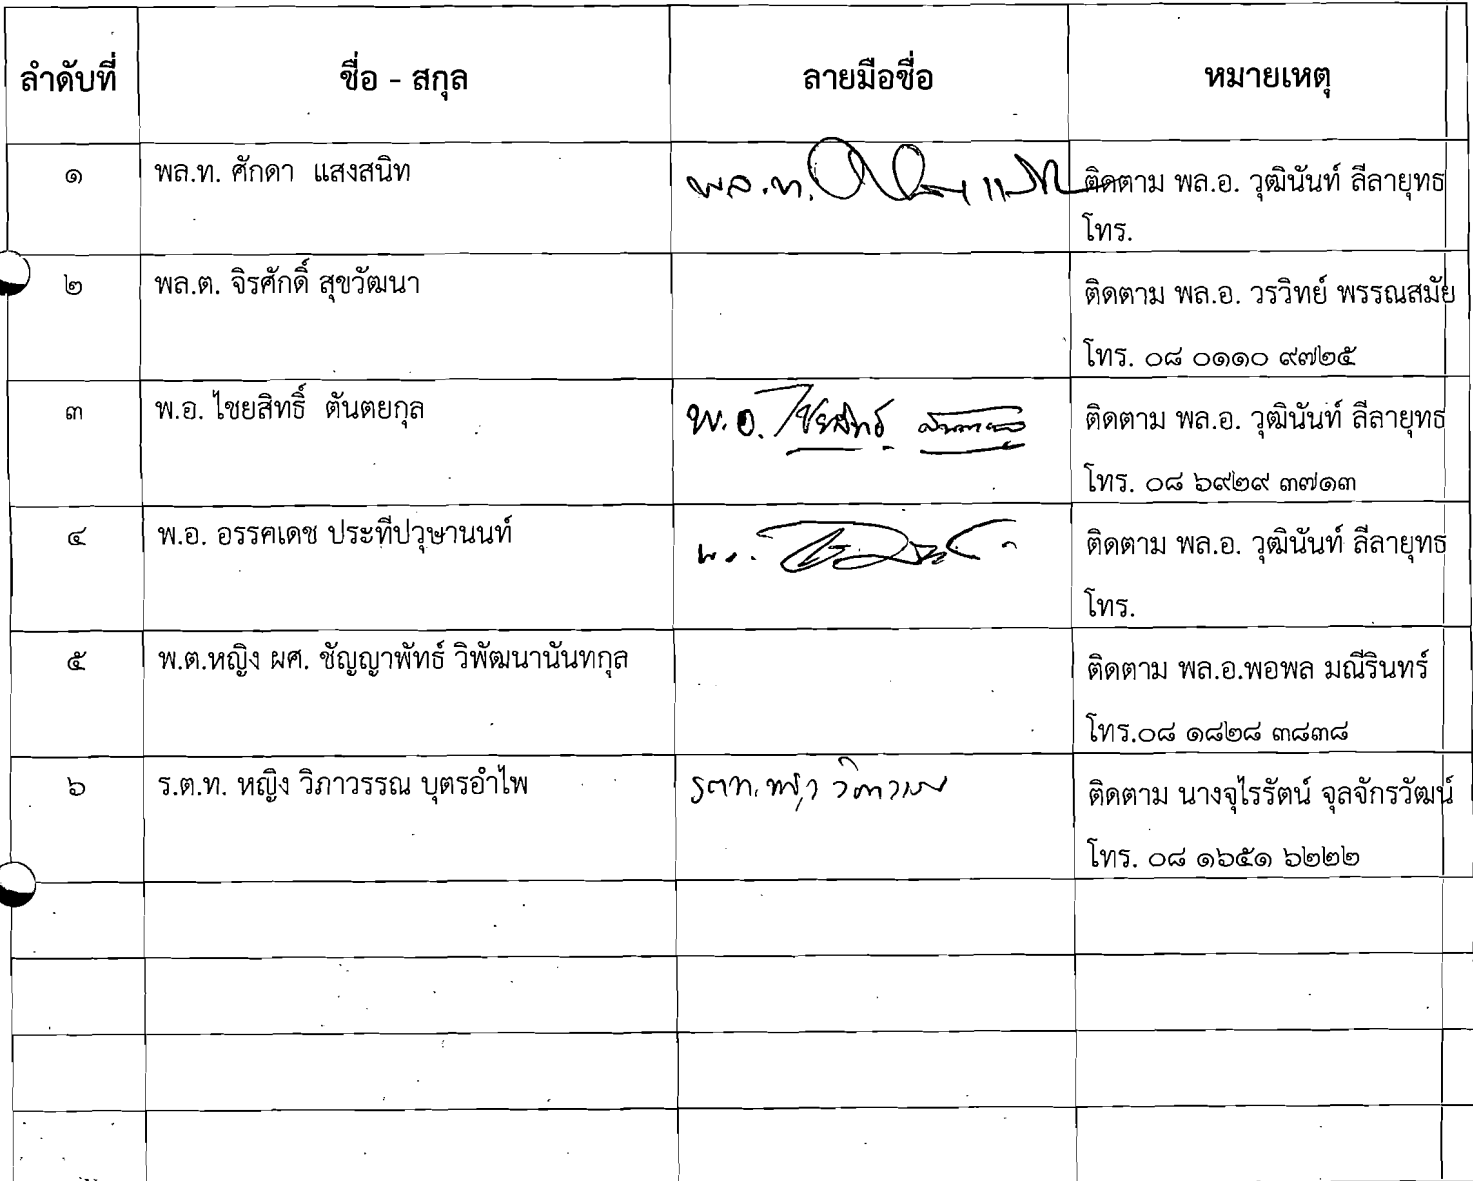 ลำดับที่ ชื่อ - สกุล ลายมือชื่อ หมายเหตุ
๑ พล.ท. ศักดา แสงสนิท พล.ท. ติดตาม พล.อ. วุฒินันท์ ลีลายุทธ
โทร.
๒ พล.ต. จิรศักดิ์ สุขวัฒนา ติดตาม พล.อ. วรวิทย์ พรรณสมัย
โทร. ๐๘ ๐๑๑๐ ๙๗๒๕
๓ พ.อ. ไชยสิทธิ์ ตันตยกุล พ.อ. ไชยสิทธิ์ ติดตาม พล.อ. วุฒินันท์ ลีลายุทธ
โทร. ๐๘ ๖๙๒๙ ๓๗๑๓
๔ พ.อ. อรรคเดช ประทีปวุษานนท์ ติดตาม พล.อ. วุฒินันท์ ลีลายุทธ
โทร.
๕ พ.ต.หญิง ผศ. ชัญญาพัทธ์ วิพัฒนานันทกุล ติดตาม พล.อ.พอพล มณีรินทร์
โทร.๐๘ ๑๘๒๘ ๓๘๓๘
๖ ร.ต.ท. หญิง วิภาวรรณ บุตรอำไพ รตท.หญิง วิภาวรรณ ติดตาม นางจุไรรัตน์ จุลจักรวัฒน์
โทร. ๐๘ ๑๖๕๑ ๖๒๒๒